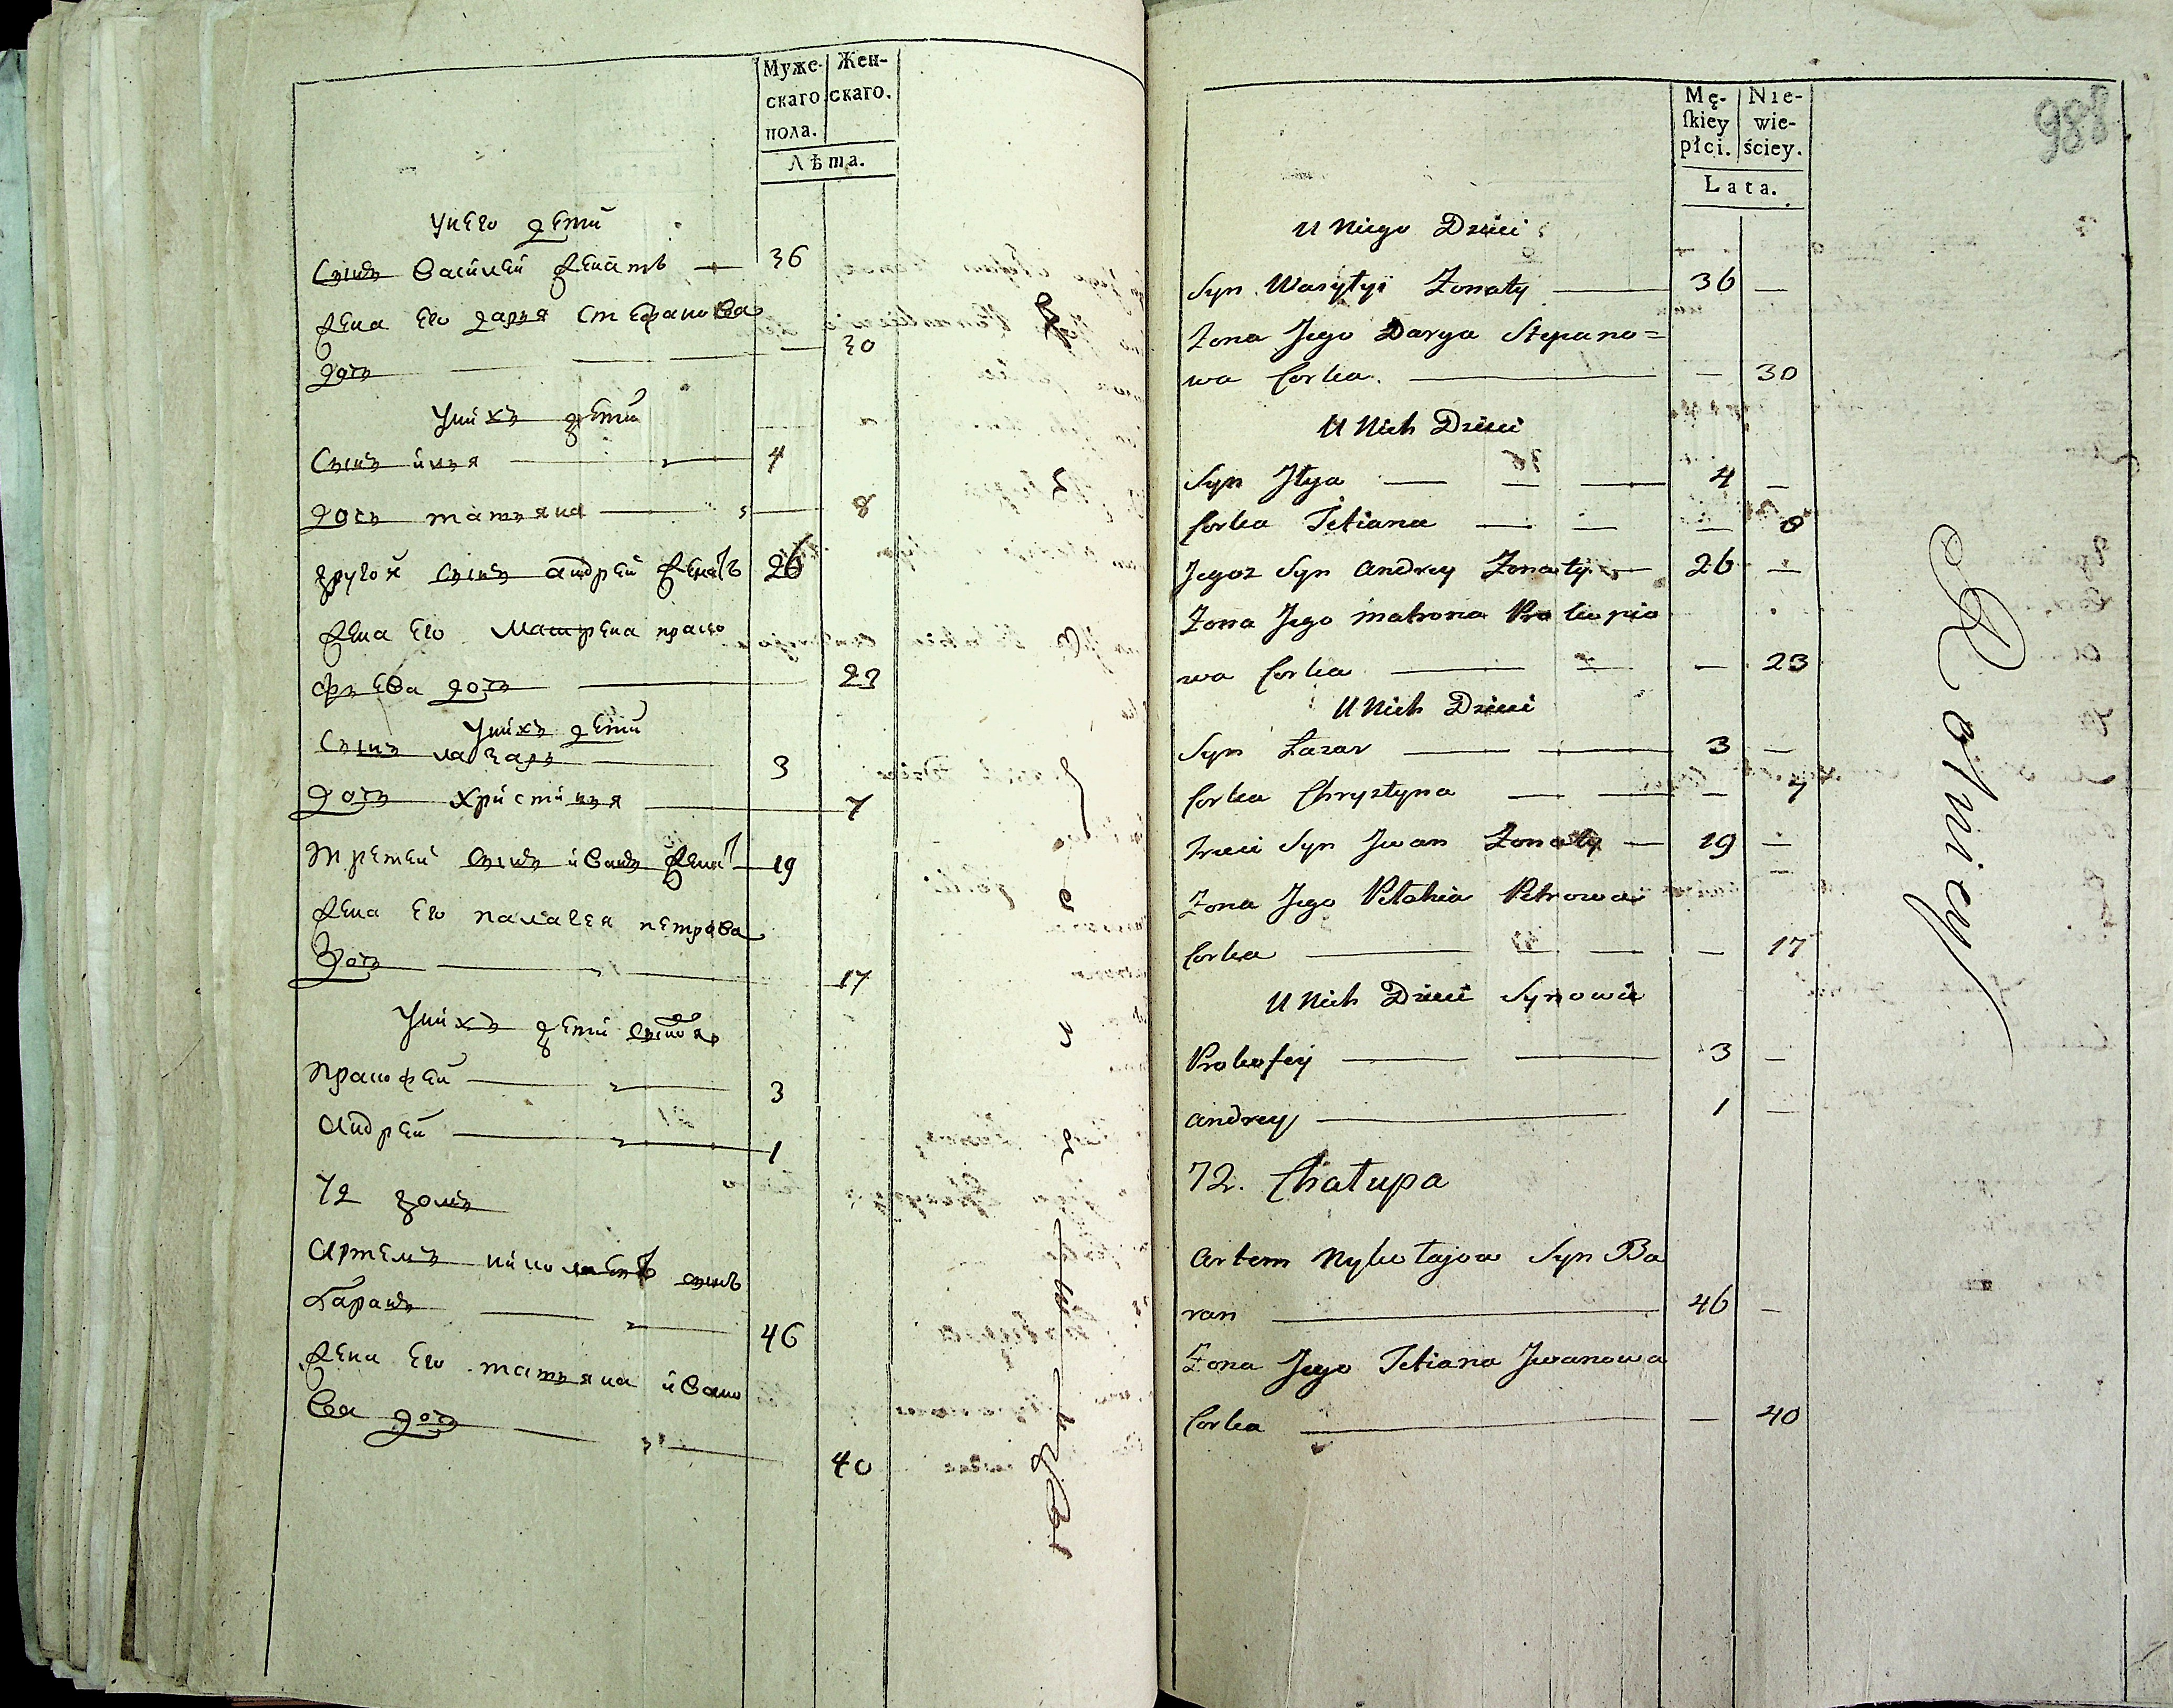 Муже-
скаго
пола.
Жен-
скаго.
Лѣта.
унего дети
Сынъ василей женатъ 36
жена его дарья степанова
дочь 30
унихъ дети
Сынъ илья 4
дочь татьяна 8
другой сынъ андрей женатъ 26
жена его матрена проко
фьева дочь 23
унихъ дети
Сынъ лазарь 3
дочь христинья 7
третей сынъ иванъ женатъ 19
жена его палагея петрова
дочь 17
унихъ дети сыновья
прокофей 3
андрей 1
72 домъ
Артемъ николаевъ сынъ
баранъ 46
жена его татьяна ивано
ва дочь 40
Mę-
ſkiey
płci.
Nie-
wie-
ściey.
Lata.
988
U Niego Dzieci
Syn Wasylyi Zonaty 36 —
Zona Jego Darya Stepano=
wa Corka — 30
U Nich Dzieci
Syn Jłya 4 —
Corka Tetiana — 8
Jegoz Syn Andrey Zonaty 26 —
Zona Jego Matrona Prokopio
wa Corka — 23
U Nich Dzieci
Syn Łazar 3 —
Corka Chrystyna — 7
Trzeci Syn Jwan Zonaty 19 —
Zona Jego Pełahia Petrowa
Corka — 17
U Nich Dzieci Synowie
Prokofey 3 —
Andrey 1 —
72. Chałupa
Artem Mykołajow Syn Ba
ran 46 —
Zona Jego Tetiana Jwanowa
Corka — 40
Rolnicy